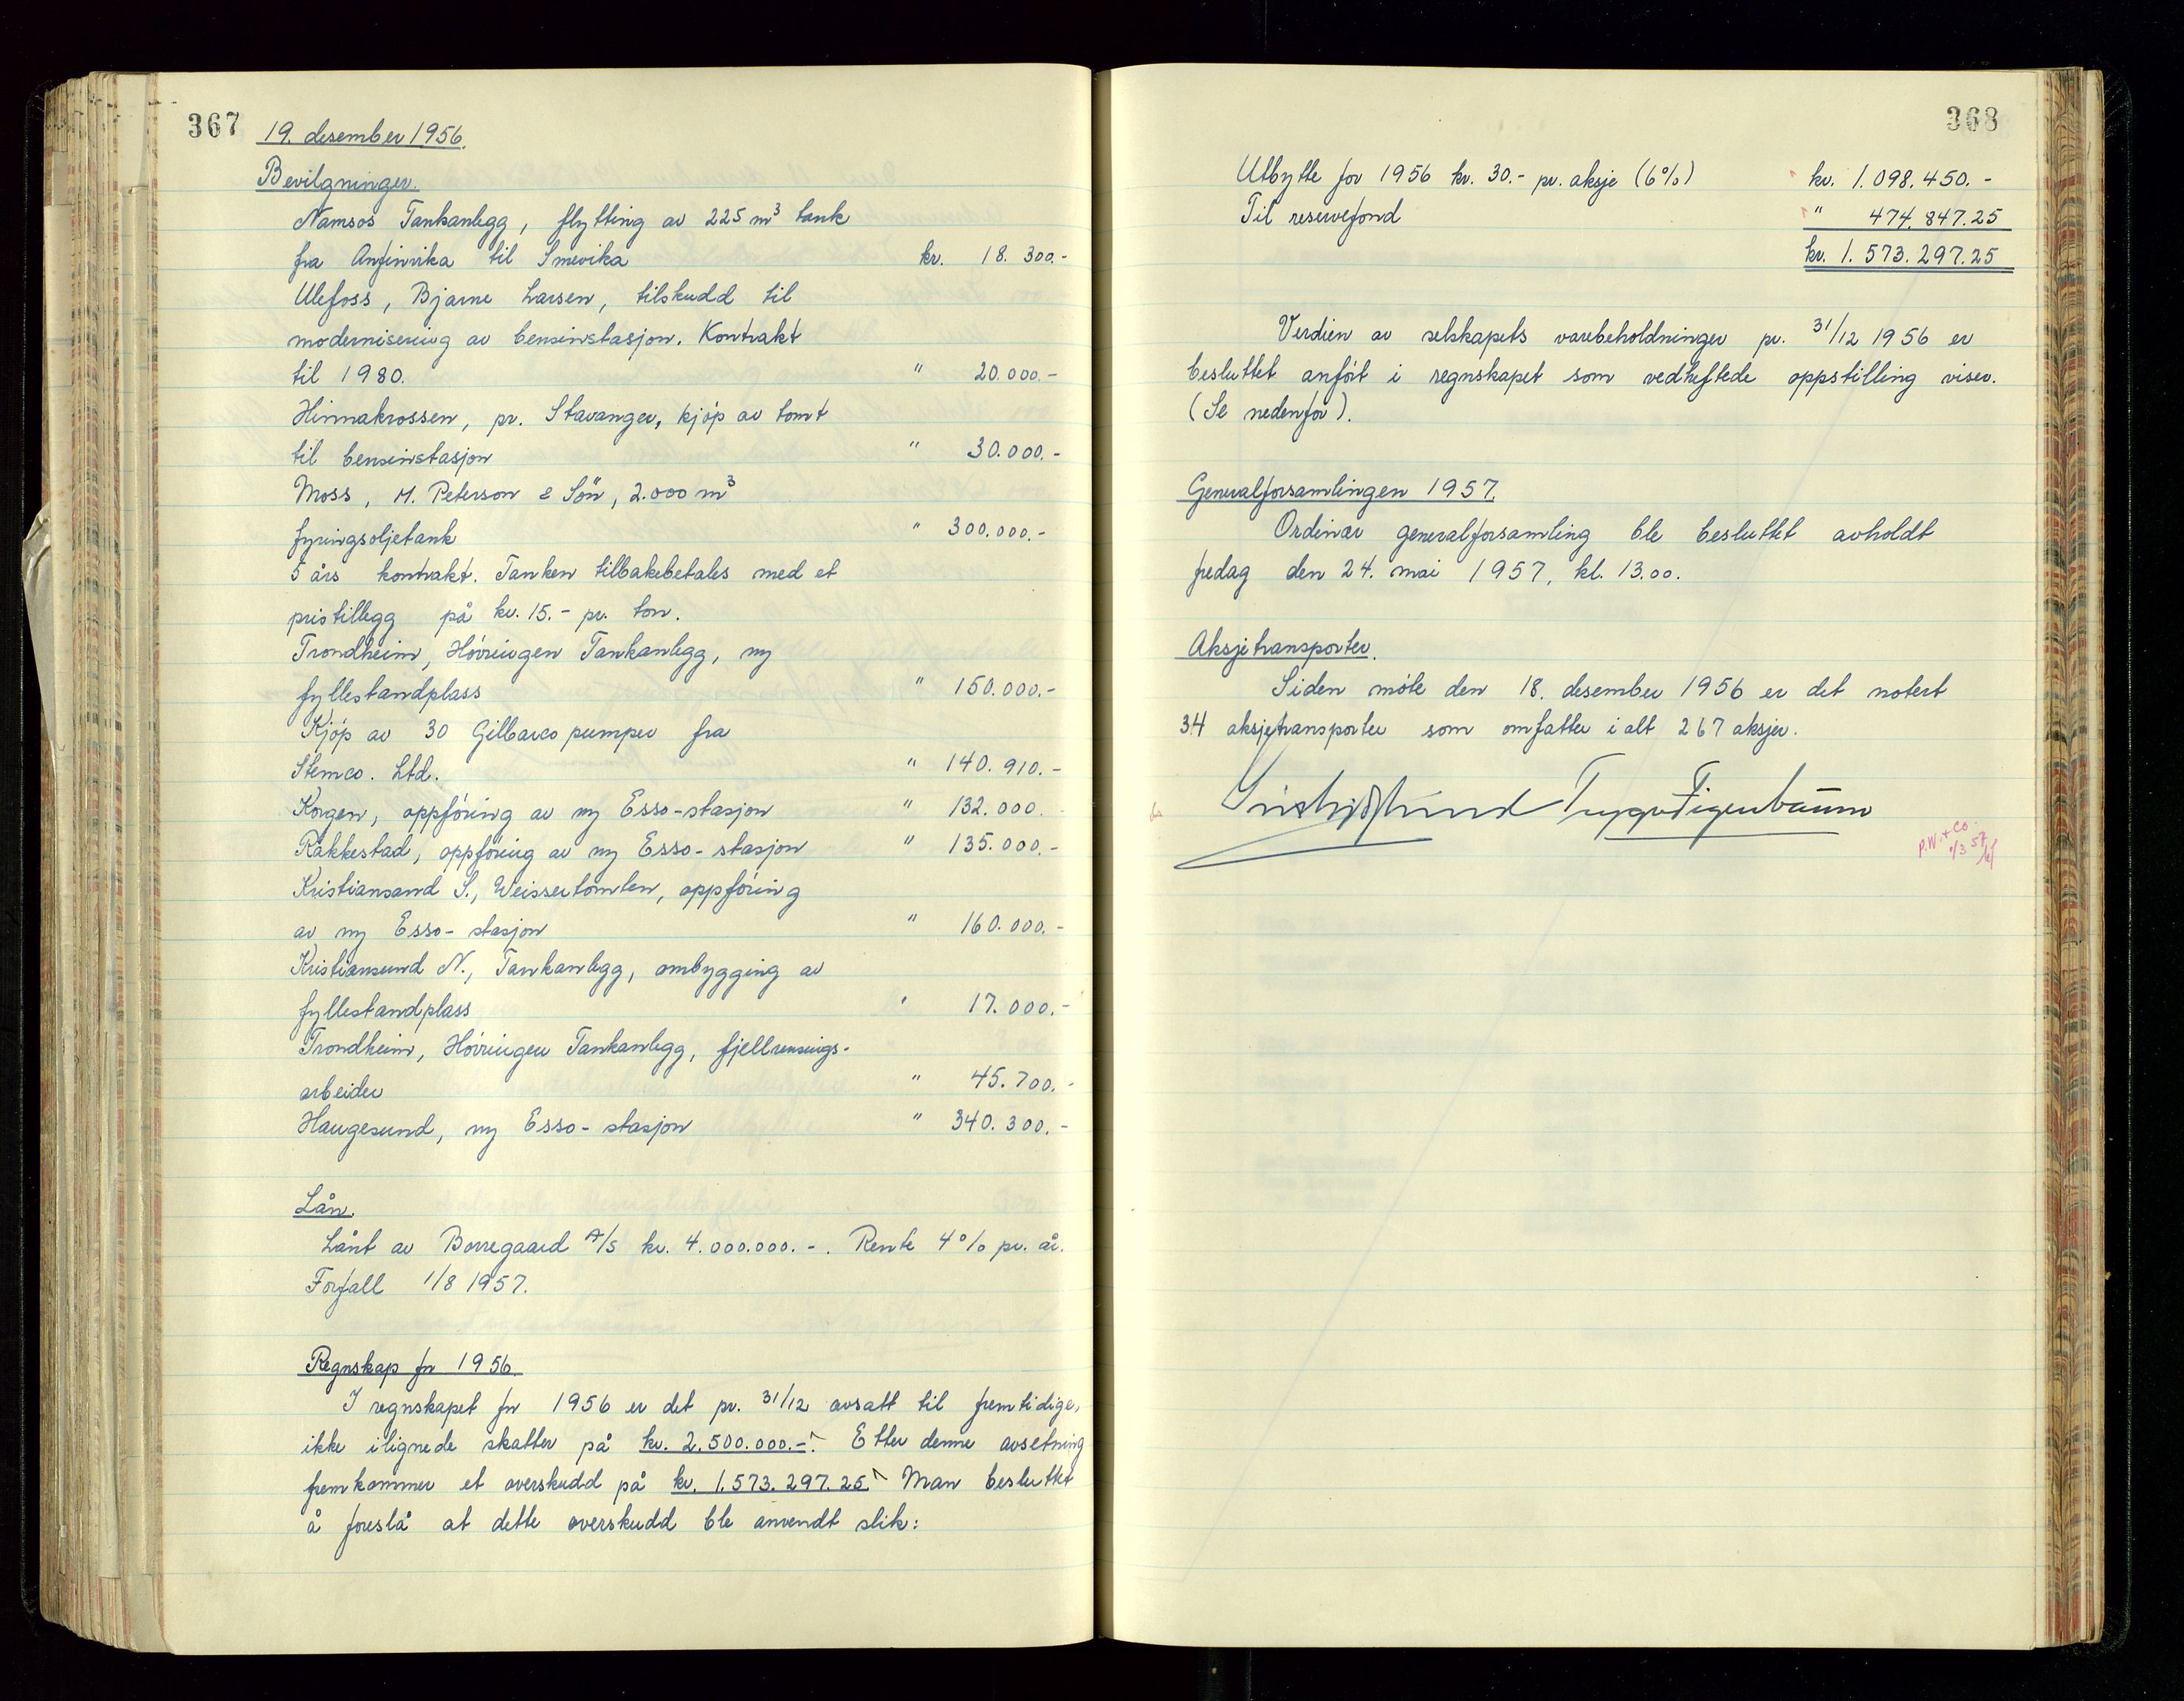 367
19. desember 1956.
Bevilgninger.
Namsos Tankanlegg, flytting av 225 m³ tank
fra Anfinvika til Smevika kr. 18.300.-
Ulefoss, Bjarne Larsen, tilskudd til
modernisering av bensinstasjon. Kontrakt
til 1980. " 20.000.-
Hinnakrossen, pr. Stavanger, kjöp av tomt
til bensinstasjon " 30.000.-
Moss, M. Peterson & Sön, 2.000 m³
fyringsoljetank " 300.000.-
5 års kontrakt. Tanken tilbakebetales med et
pristillegg på kr. 15.- pr. ton.
Trondheim, Hövringen Tankanlegg, ny
fyllestandplass " 150.000.-
Kjöp av 30 Gilbarco pumper fra
Stemco. Ltd. " 140.910.-
Korgen, oppföring av ny Esso-stasjon " 132.000.
Rakkestad, oppföring av ny Esso-stasjon " 135.000.-
Kristiansand S., Weissertomten, oppföring
av ny Esso-stasjon " 160.000.-
Kristiansund N., Tankanlegg, ombygging av
fyllestandplass " 17.000.-
Trondheim, Hövringen Tankanlegg, fjellrensings-
arbeider " 45.700.-
Haugesund, ny Esso-stasjon " 340.300.-
Lån.
Lånt av Borregaard A/S kr. 4.000.000.-. Rente 4% pr. år.
Forfall 1/8 1957.
Regnskap for 1956.
I regnskapet for 1956 er det pr. 31/12 avsatt til fremtidige,
ikke ilignede skatter på kr. 2.500.000.-. Etter denne avsetning
fremkommer et overskudd på kr. 1.573.297.25. Man besluttet
å foreslå at dette overskudd ble anvendt slik:
368
Utbytte for 1956 kr. 30.- pr. aksje (6%) kr. 1.098.450.-
Til reservefond " 474.847.25
kr. 1.573.297.25
Verdien av selskapets varebeholdninger pr. 31/12 1956 er
besluttet anfört i regnskapet som vedheftede oppstilling viser.
(Se nedenfor).
Generalforsamlingen 1957.
Ordinær generalforsamling ble besluttet avholdt
fredag den 24. mai 1957, kl. 13.00.
Aksjetransporter.
Siden möte den 18. desember 1956 er det notert
34 aksjetransporter som omfatter i alt 267 aksjer.
P.W. & Co.